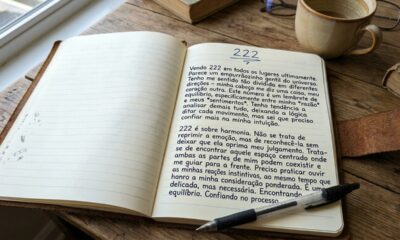 222
Vendo 222 em todos os lugares ultimamente.
Parece um empurrãozinho gentil do universo.
Tenho me sentido tão dividido em diferentes
direções – minha cabeça me diz uma coisa, meu
coração outra. Este número é um lembrete de
equilíbrio, especificamente entre minha *razão*
e meus *sentimentos*. Tenho tendência a
analisar demais tudo, deixando a lógica
ditar cada movimento, mas sei que preciso
confiar mais na minha intuição.
222 é sobre harmonia. Não se trata de
reprimir a emoção, mas de reconhecê-la sem
deixar que ela oprima meu julgamento. Trata-
se de encontrar aquele espaço centrado onde
ambas as partes de mim podem coexistir e
me guiar para a frente. Preciso praticar ouvir
as minhas reações instintivas, ao mesmo tempo que
honro a minha consideração ponderada. É uma
delicada, mas necessária. Encontrando
equilíbrio. Confiando no processo.